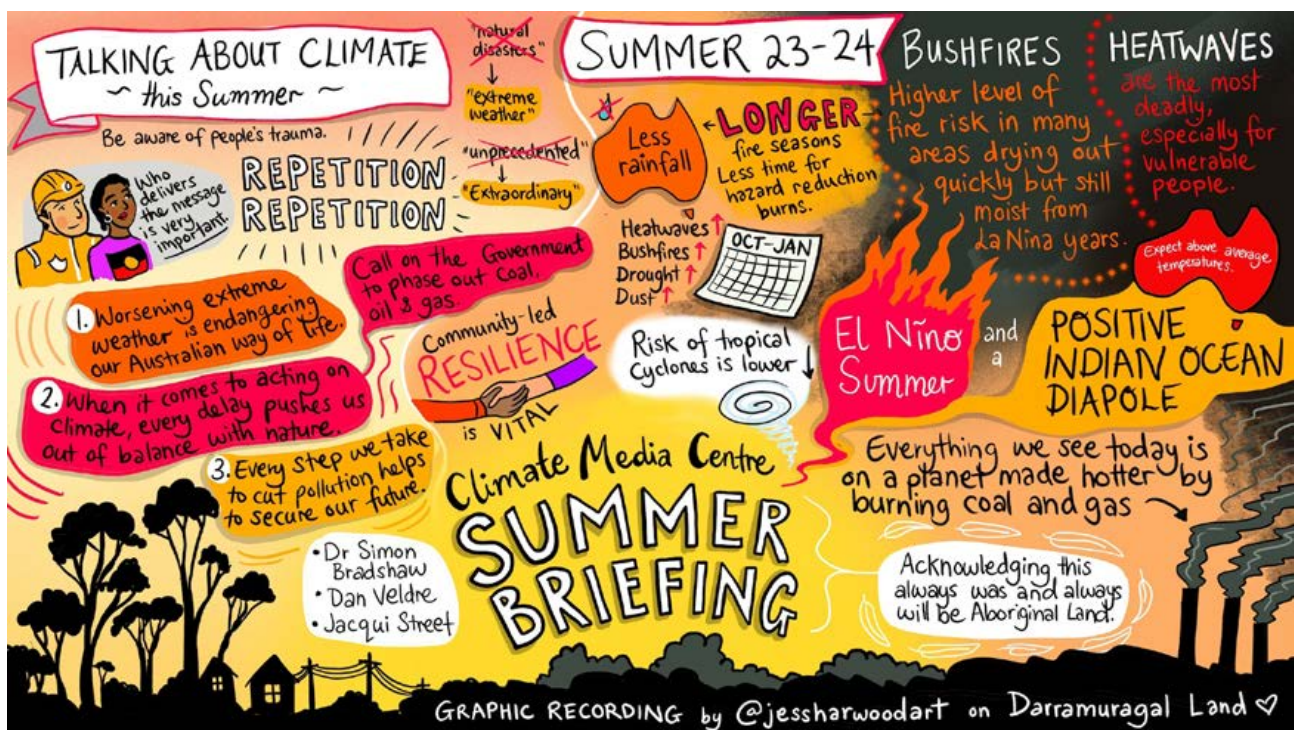 TALKING ABOUT CLIMATE
~ this Summer ~
Be aware of people's trauma.
Who
delivers
the message
is very
important.
REPETITION
REPETITION
"natural
disasters"
"extreme
weather"
"unprecedented"
"Extraordinary"
1. Worsening extreme
weather is endangering
our Australian way of life.
2. When it comes to acting on
climate, every delay pushes us
out of balance with nature.
3. Every step we take
to cut pollution helps
to secure our future.
Call on the Government
to phase out coal,
oil & gas.
Community-led
RESILIENCE
is VITAL
• Dr Simon
Bradshaw
• Dan Veldre
• Jacqui Street
Climate Media Centre
SUMMER
BRIEFING
SUMMER 23-24
Less
rainfall
LONGER
fire seasons
Less time for
hazard reduction
burns.
Heatwaves ↑
Bushfires ↑
Drought ↑
Dust ↑
OCT-JAN
Risk of tropical
cyclones is lower
BUSHFIRES
Higher level of
fire risk in many
areas drying out
quickly but still
moist from
La Nina years.
HEATWAVES
are the most
deadly,
especially for
vulnerable
people.
Expect above average
temperatures.
El Niño
Summer
and
a
POSITIVE
INDIAN OCEAN
DIAPOLE
Everything we see today is
on a planet made hotter by
burning coal and gas
Acknowledging this
always was and always
will be Aboriginal Land.
GRAPHIC RECORDING by @jessharwoodart on Darramuragal Land ♡